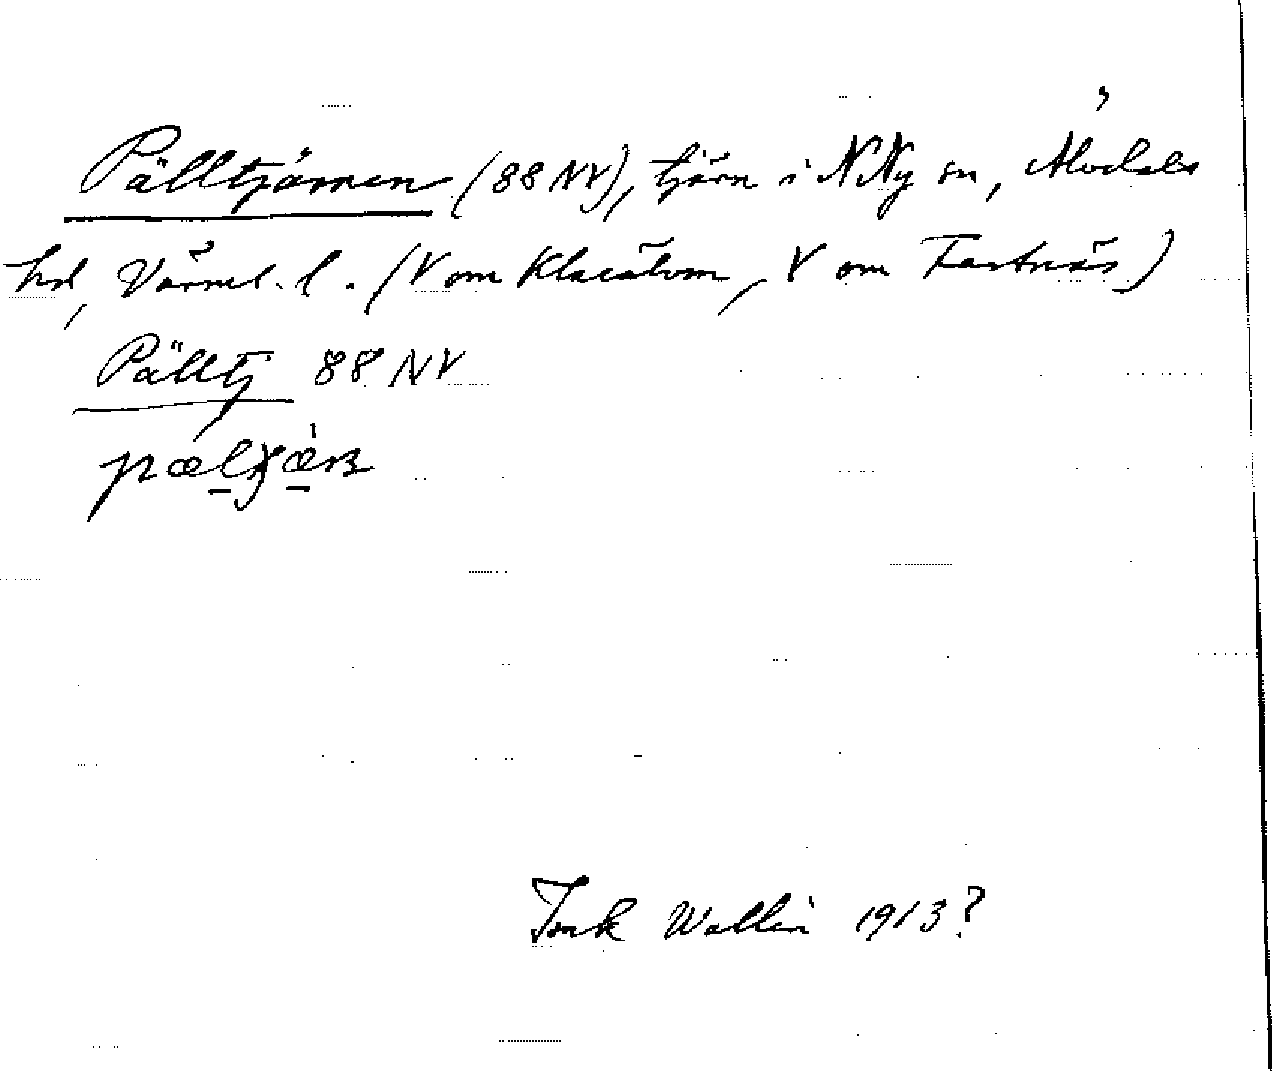 Pälltjärnen (88 NV), tjärn i N Ny sn, Älvdals
hd, Värml. l. (V om Klarälven, V om Fastnäs)
Pälltj 88 NV
Wallin 1913?